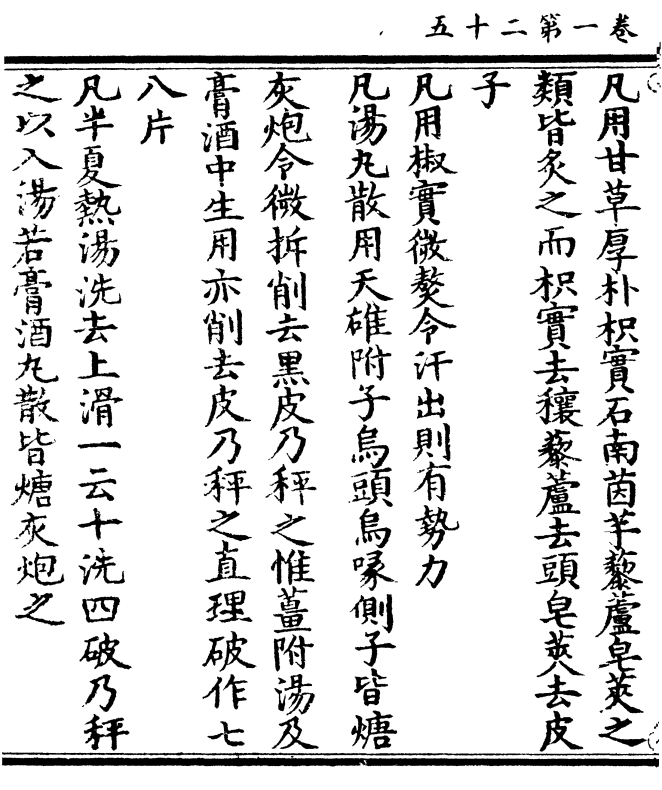 卷一第二十五
凡用甘草厚朴枳實石南茵芋藜蘆皂莢之
類皆炙之而枳實去穰藜蘆去頭皂莢去皮
子
凡用椒實微熬令汗出則有勢力
凡湯丸散用天雄附子烏頭烏喙側子皆煻
灰炮令微拆削去黑皮乃秤之惟薑附湯及
膏酒中生用亦削去皮乃秤之直理破作七
八片
凡半夏熱湯洗去上滑一云十洗四破乃秤
之以入湯若膏酒丸散皆煻灰炮之